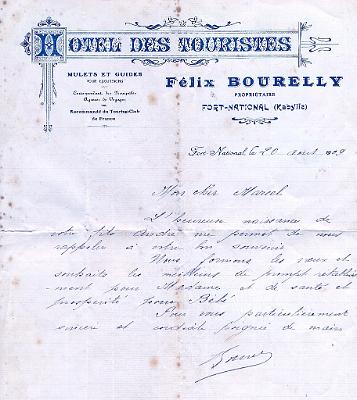 HOTEL DES TOURISTES
MULETS ET GUIDES
POUR EXCURSIONS
Correspondant des Transports
Agences de Voyages
Recommandé du Touring-Club
de France
Félix BOURELLY
PROPRIÉTAIRE
FORT-NATIONAL (Kabylie)
Fort-National, le 20 août 1909
Mon cher Marcel
L'heureuse naissance de
votre fils André me permet de vous
rappeler à votre bon souvenir
Nous formons les vœux et
souhaits les meilleurs de prompt rétablisse
-ment pour Madame et de santé et
prospérité pour Bébé
Pour vous particulièrement
sincère et cordiale poignée de mains